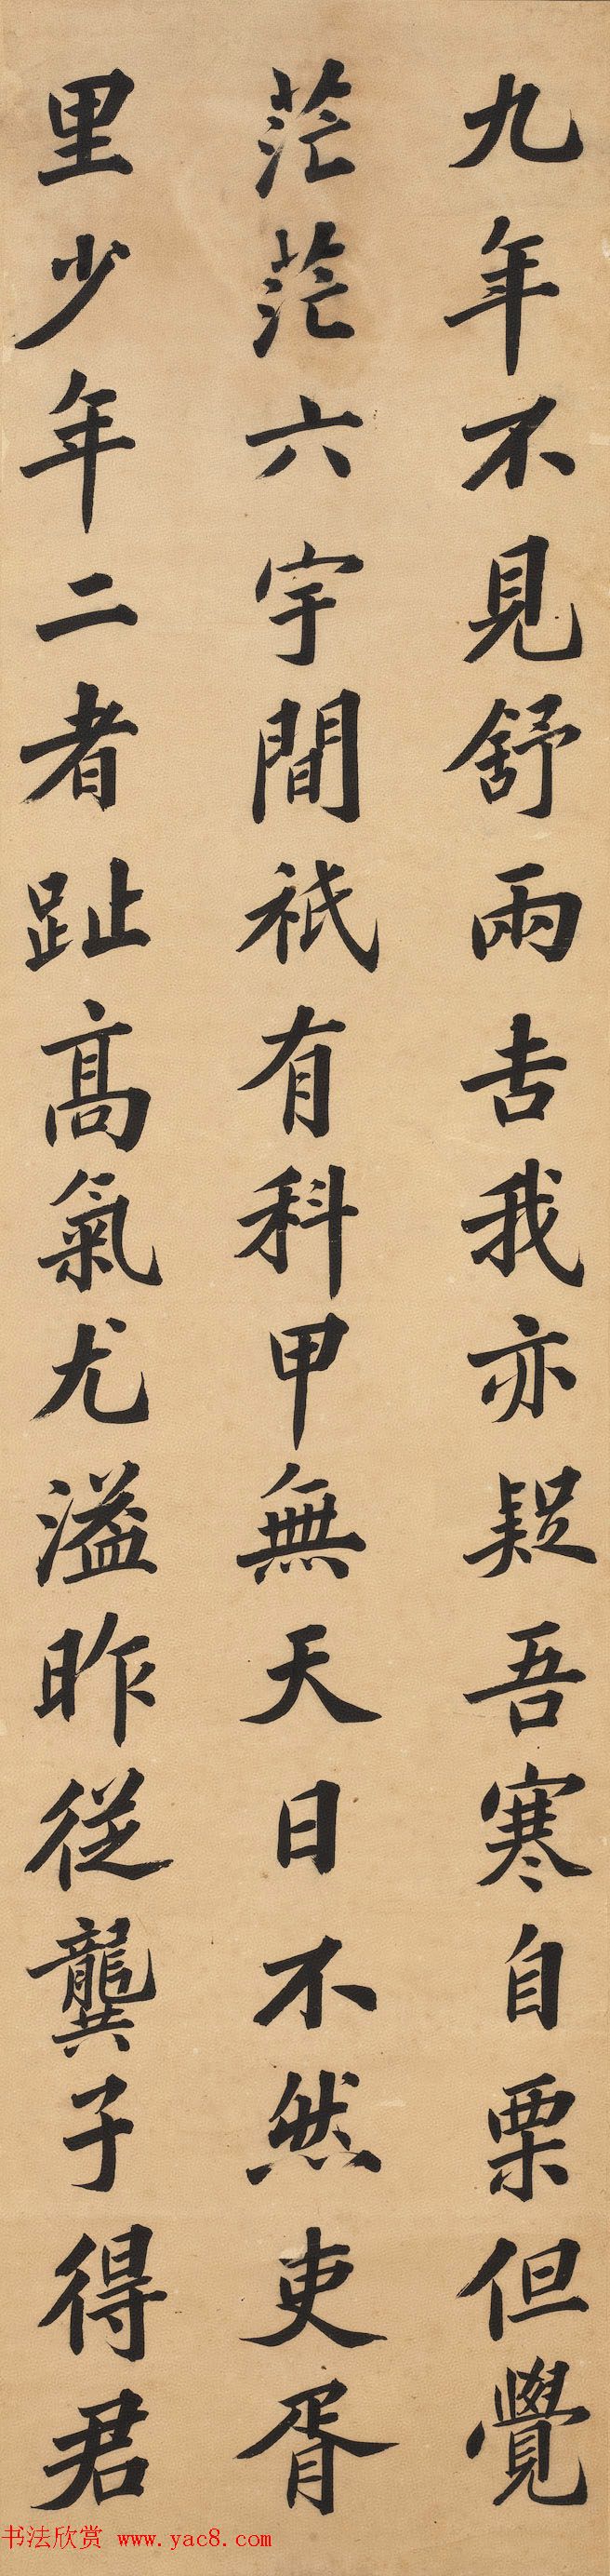 九年不見舒雨吉我亦疑吾寒自栗但覺
茫茫六宇間祇有科甲無天日不然吏胥
里少年二者趾高氣尤溢昨從龔子得君
书法欣赏 www.yac8.com